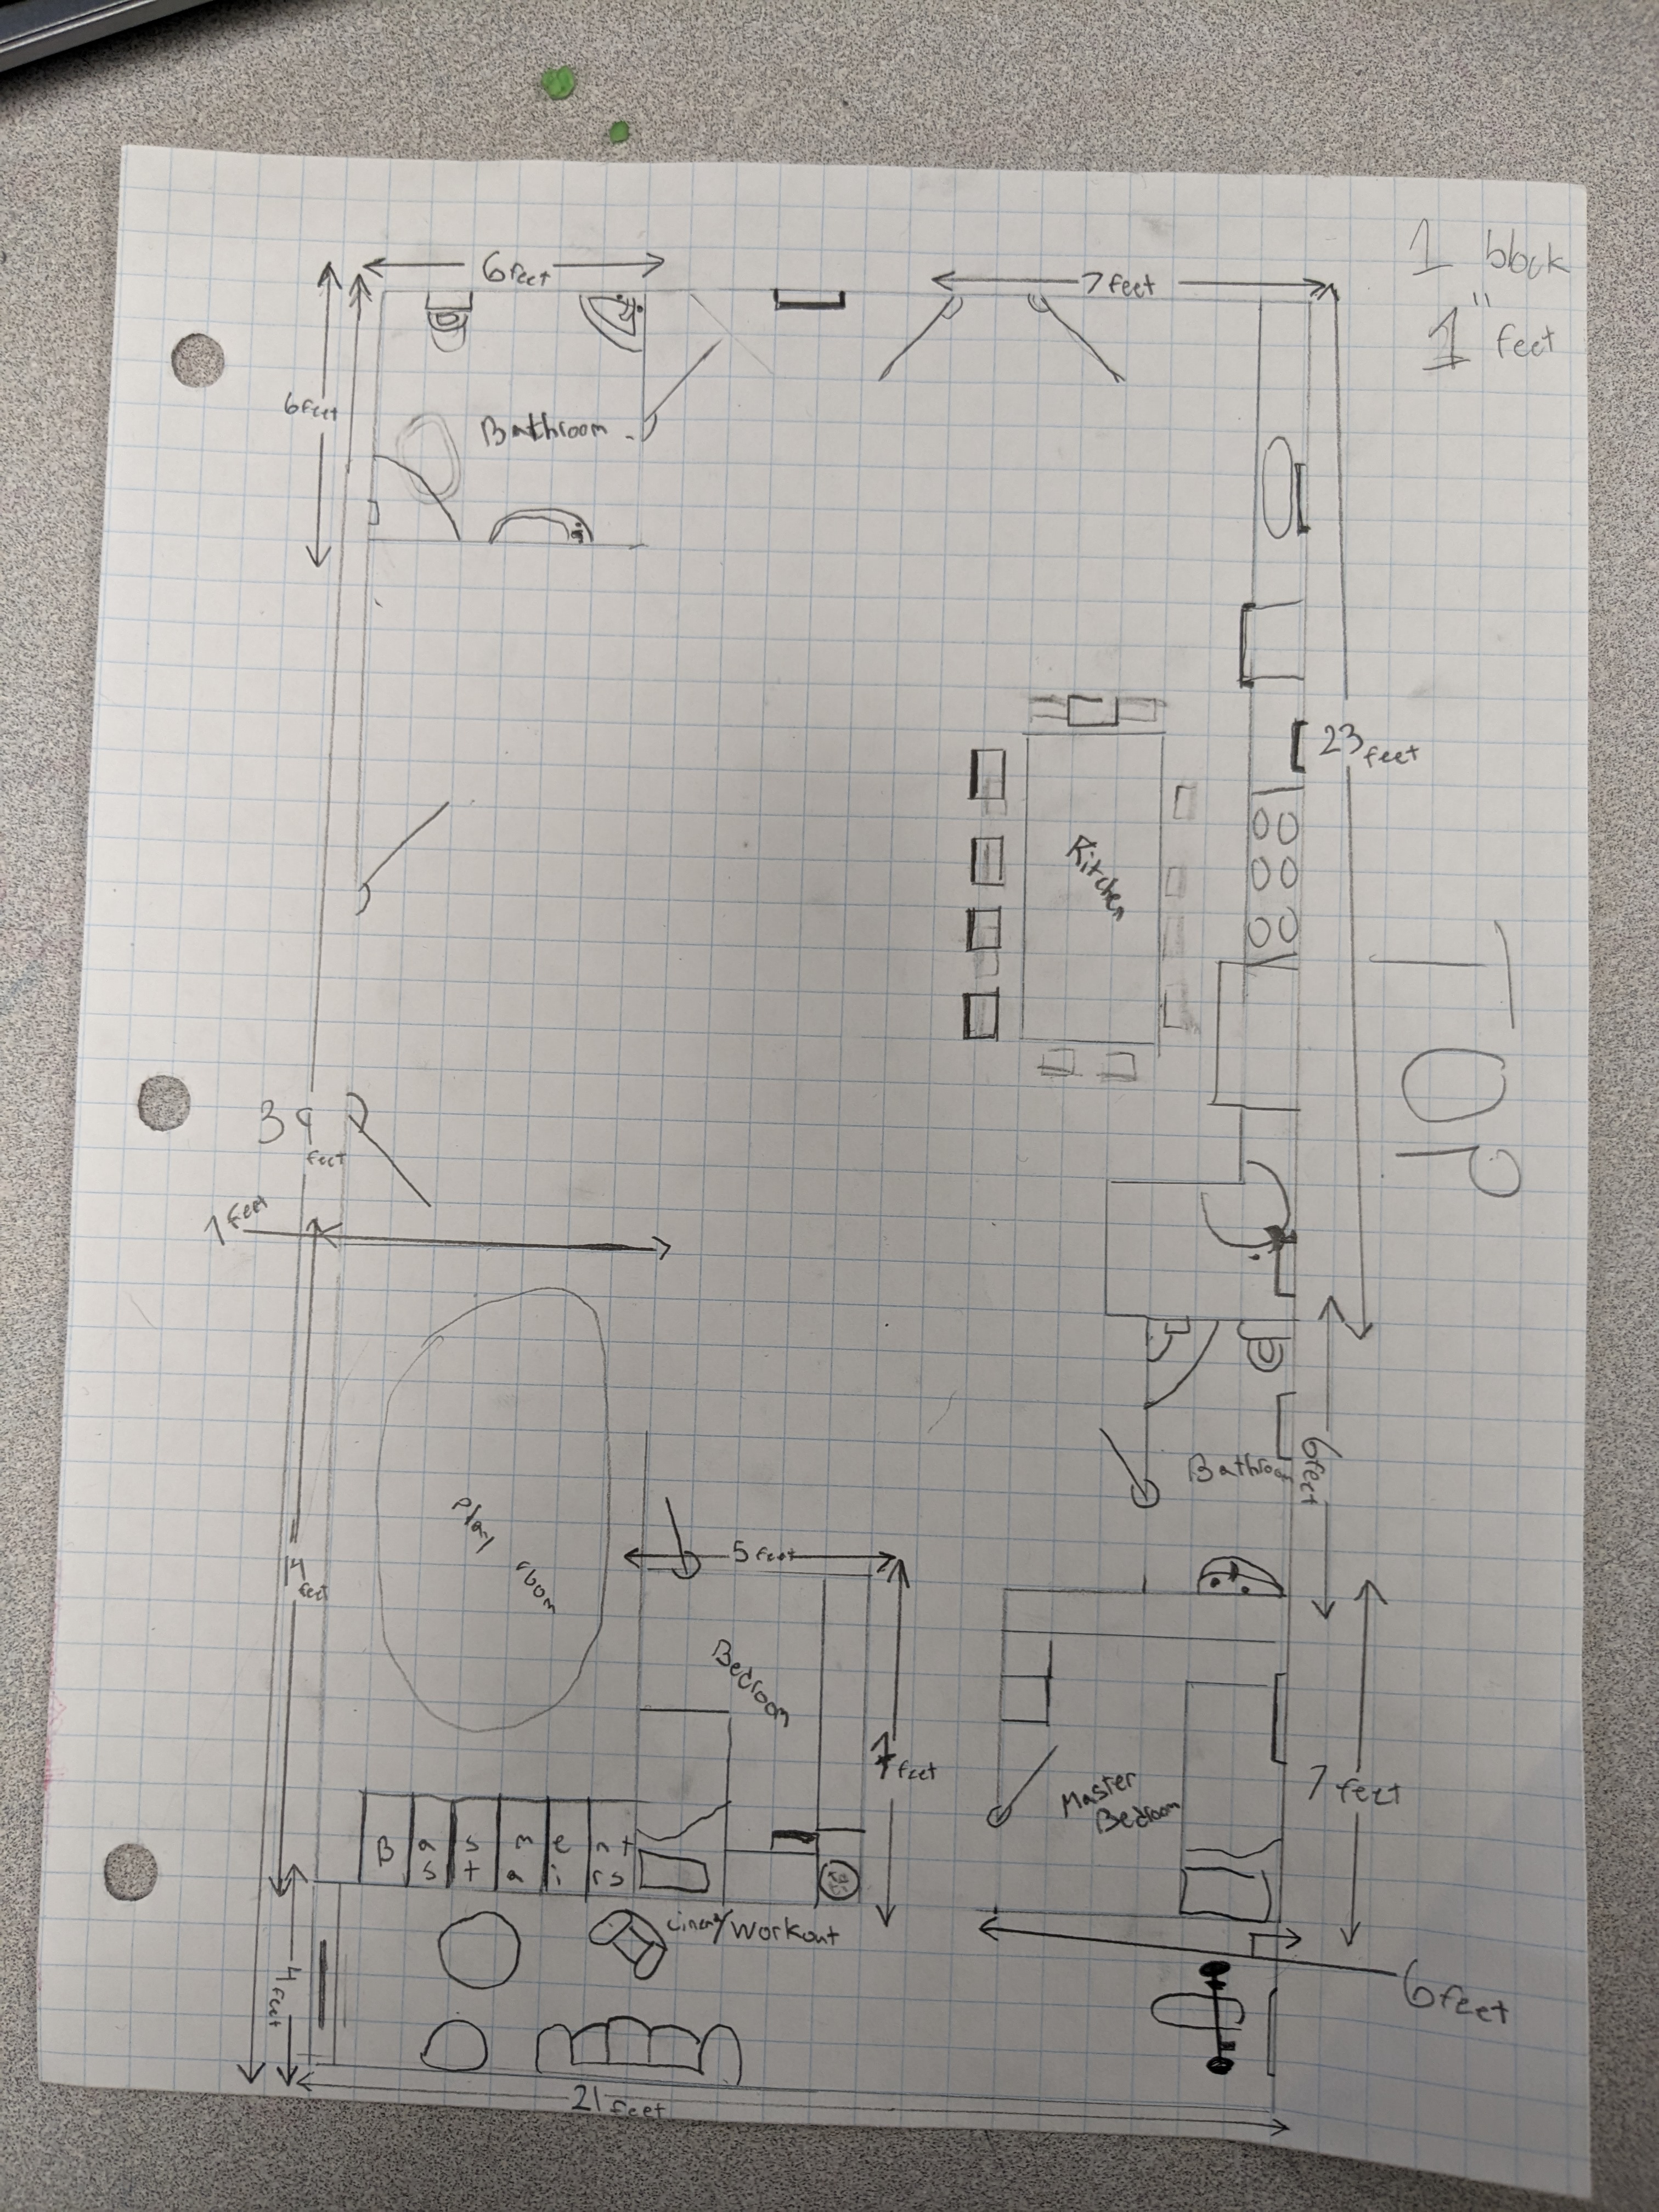 1 block
"
1 feet
6 feet
7 feet
6 feet
Bathroom
23 feet
Kitchen
TOP
39
feet
7 feet
Bathroom
6 feet
Play
room
5 feet
14
feet
Bedroom
7 feet
Master
Bedroom
7 feet
B a s m e n t
s t a i r s
Cinema/Workout
4 feet
6 feet
21 feet